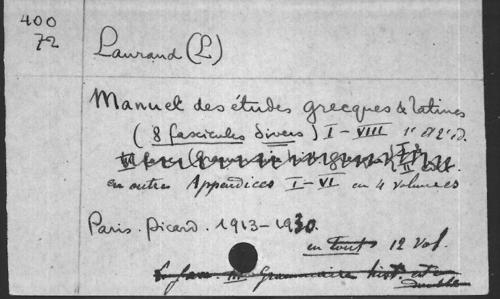 400
72
Laurand (L)
Manuel des études grecques & latines
(8 fascicules divers) I - VIII 1e et 2e éd.
en outres Appendices I - VI en 4 volumes
Paris. Picard. 1913-1930.
en tout 12 vol.
Grammaire hist. et en
double